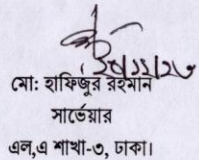 মো: হাফিজুর রহমান
সার্ভেয়ার
এল,এ শাখা-৩, ঢাকা।